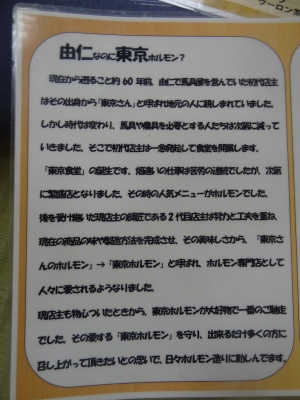 ウーロン茶
由仁なのに東京ホルモン？
現在から遡ること約60年前、由仁で馬具屋を営んでいた初代店主
はその出身から「東京さん」と呼ばれ地元の人に親しまれていました。
しかし時代は変わり、馬具や農具を必要とする人たちは次第に減って
いきました。そこで初代店主は一念発起して食堂を開業します。
「東京食堂」の誕生です。畑違いの仕事は苦労の連続でしたが、次第
に繁盛店となりました。その時の人気メニューがホルモンでした。
後を受け継いだ現店主の師匠である2代目店主は努力と工夫を重ね、
現在の商品の味や製造方法を完成させ、その美味しさから、「東京さ
んのホルモン」→「東京ホルモン」と呼ばれ、ホルモン専門店として
人々に愛されるようなりました。
現店主も物心ついたときから、東京ホルモンが大好物で一番のご馳走
でした。その愛する「東京ホルモン」を守り、出来るだけ多くの方に
召し上がって頂きたいとの思いで、日々ホルモン造りに励んでます。